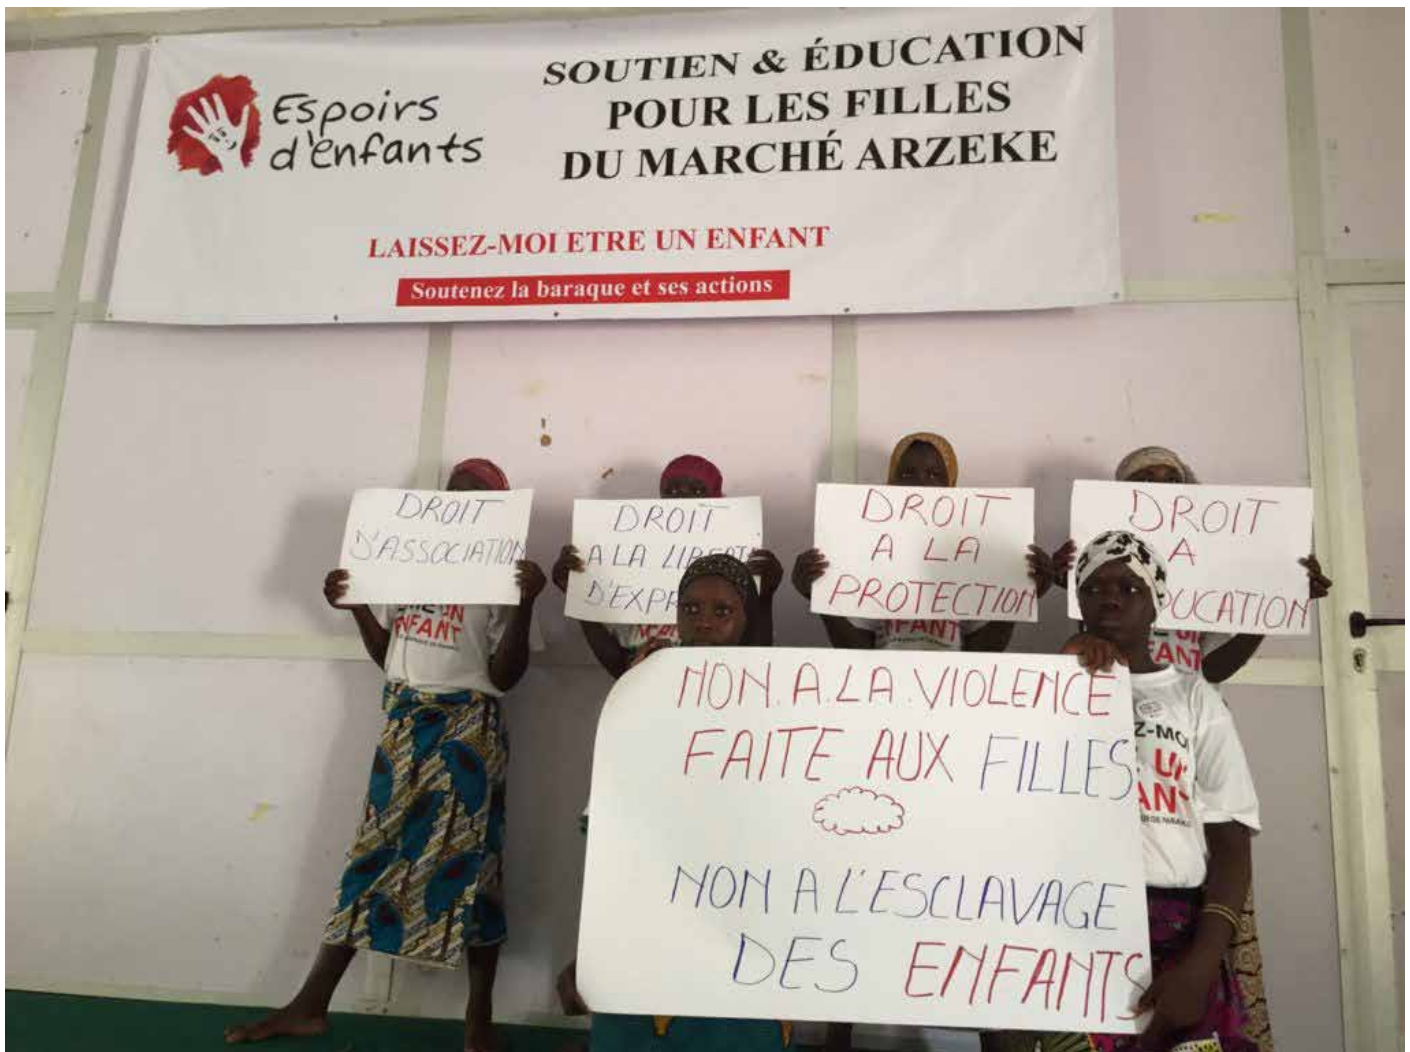 Espoirs
d'enfants
SOUTIEN & ÉDUCATION
POUR LES FILLES
DU MARCHÉ ARZEKE
LAISSEZ-MOI ETRE UN ENFANT
Soutenez la baraque et ses actions
DROIT
D'ASSOCIATION
DROIT
A LA
D'EXPR
DROIT
A LA
PROTECTION
DROIT
A
DUCATION
UN
ENFANT
ENFANT
NON.A.LA.VIOLENCE
FAITE AUX FILLES
NON A L'ESCLAVAGE
DES ENFANTS
Z-MO